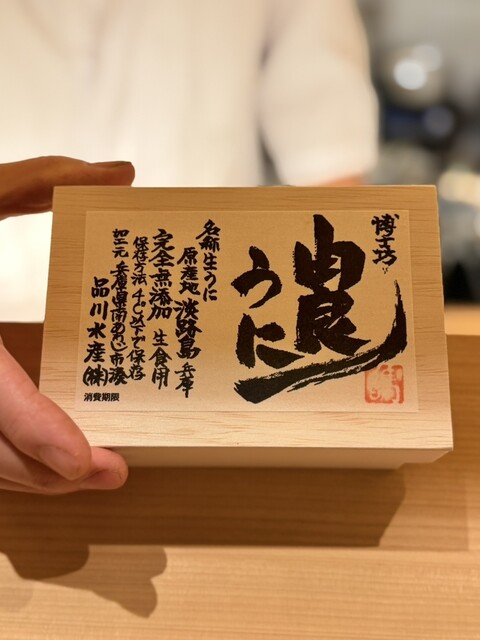 博士坊
由良
うに
名称 生うに
原産地 淡路島 兵庫
完全無添加 生食用
保存方法 4℃以下で保存
加工元 兵庫県南あわじ市湊
品川水産(株)
消費期限